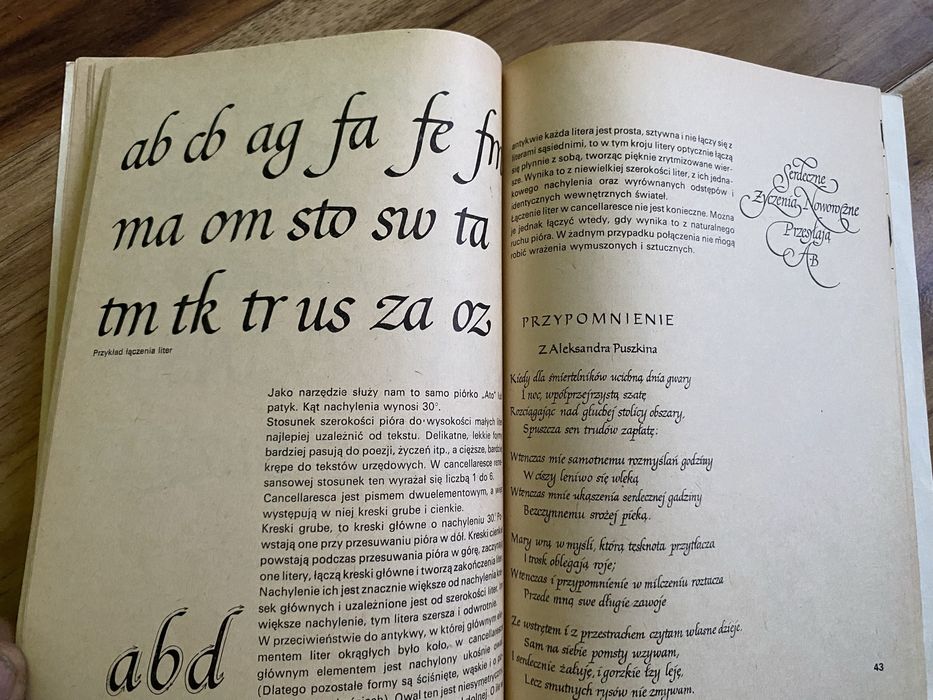 ab cb ag fa fe fm
ma om sto sw ta
tm tk tr us za oz
Przykład łączenia liter
Jako narzędzie służy nam to samo piórko „Ato"
patyk. Kąt nachylenia wynosi 30°.
Stosunek szerokości pióra do wysokości małych
najlepiej uzależnić od tekstu. Delikatne, lekkie
bardziej pasują do poezji, życzeń itp., a cięższe,
krępe do tekstów urzędowych. W cancellaresce
sansowej stosunek ten wyrażał się liczbą 1 do 6.
Cancellaresca jest pismem dwuelementowym, a
występują w niej kreski grube i cienkie.
Kreski grube, to kreski główne o nachyleniu 30°.
wstają one przy przesuwaniu pióra w dół. Kreski cienkie
powstają podczas przesuwania pióra w górę,
one litery, łączą kreski główne i tworzą zakończenia
Nachylenie ich jest znacznie większe od nachylenia
sek głównych i uzależnione jest od szerokości liter.
większe nachylenie, tym litera szersza i odwrotnie.
W przeciwieństwie do antykwy, w której głównym
mentem liter okrągłych było koło, w
głównym elementem jest nachylony ukośnie
(Dlatego pozostałe formy są ściśnięte, wąskie i
Owal ten jest
abd
antykwie każda litera jest prosta, sztywna i nie łączy się z
literami sąsiednimi, to w tym kroju litery optycznie łączą
się płynnie z sobą, tworząc pięknie zrytmizowane wier-
sze. Wynika to z niewielkiej szerokości liter, z ich jedna-
kowego nachylenia oraz wyrównanych odstępów i
identycznych wewnętrznych świateł.
Łączenie liter w cancellaresce nie jest konieczne. Można
je jednak łączyć wtedy, gdy wynika to z naturalnego
ruchu pióra. W żadnym przypadku połączenia nie mogą
robić wrażenia wymuszonych i sztucznych.
Serdeczne
Życzenia Noworoczne
Przesyłają
AB
PRZYPOMNIENIE
Z Aleksandra Puszkina
Kiedy dla śmiertelników ucichną dnia gwary
I noc, wpółprzejrzystą szatę
Rozciągając nad głuchej stolicy obszary,
Spuszcza sen trudów zapłatę:
Wtenczas mie samotnemu rozmyślań godziny
W ciszy leniwo się wleką
Wtenczas mnie ukąszenia serdecznej gadziny
Bezczynnemu srożej pieką.
Mary wrą w myśli, którą tesknota przytłacza
I trosk oblegają roje;
Wtenczas i przypomnienie w milczeniu roztacza
Przede mną swe długie zawoje
Ze wstrętem i z przestrachem czytam własne dzieje,
Sam na siebie pomsty wzywam,
I serdecznie żałuję, i gorzkie łzy leję,
Lecz smutnych rysów nie zmywam.
43